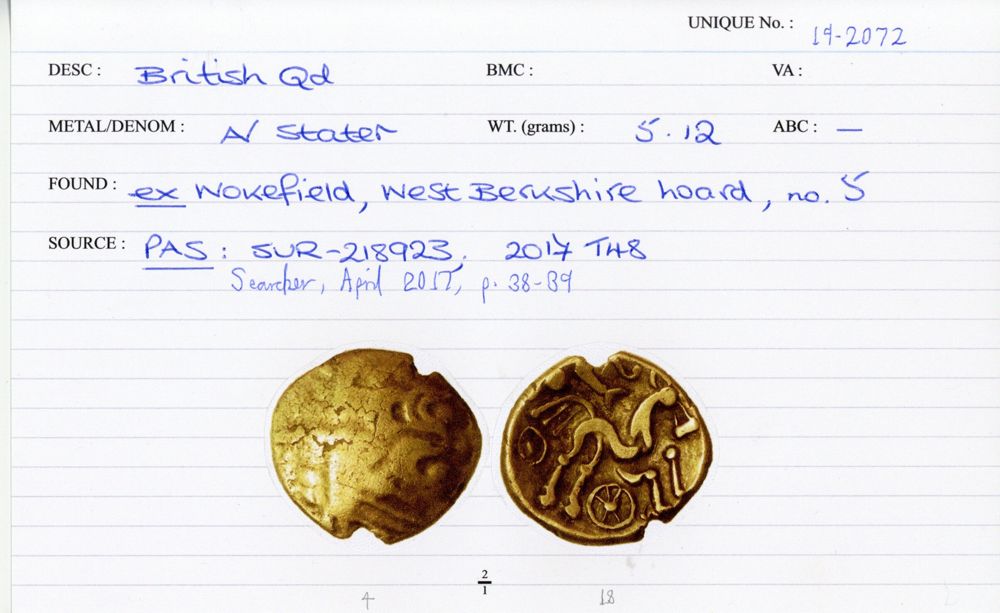 UNIQUE No. : 19-2072
DESC : British Qd BMC : VA :
METAL/DENOM : A/ Stater WT. (grams) : 5.12 ABC : —
FOUND : ex Wokefield, West Berkshire hoard, no. 5
SOURCE : PAS : SUR-218923, 2017 T48
Searcher, April 2017, p. 38-39
2
1
4 18